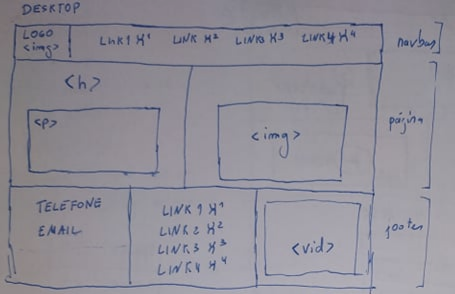 DESKTOP
LOGO
<img>
LINK1 X¹ LINK X² LINK X³ LINK4 X⁴
navbar
<h>
<p>
<img>
página
TELEFONE
EMAIL
LINK1 X¹
LINK2 X²
LINK3 X³
LINK4 X⁴
<vid>
footer